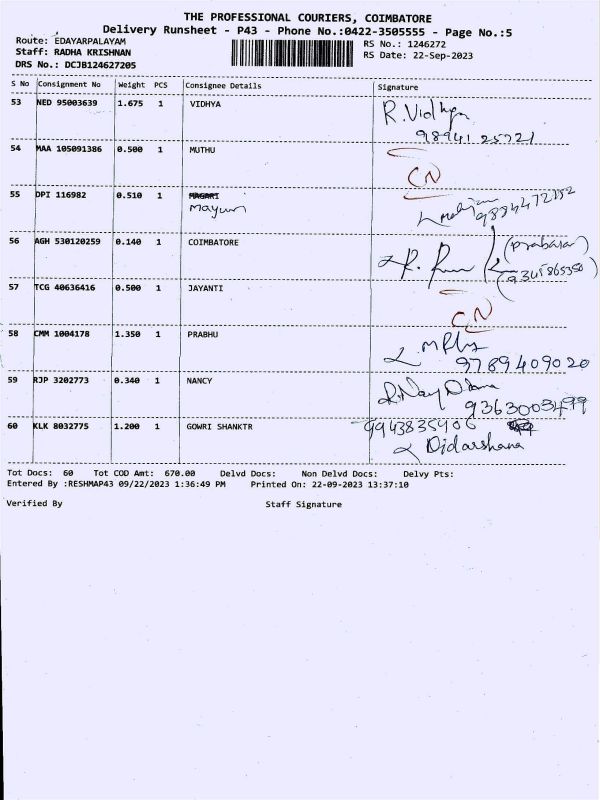 THE PROFESSIONAL COURIERS, COIMBATORE
Delivery Runsheet - P43 - Phone No.:0422-3505555 - Page No.:5
Route: EDAYARPALAYAM
RS No.: 1246272
Staff: RADHA KRISHNAN
RS Date: 22-Sep-2023
DRS No.: DCJB124627205
S No Consignment No Weight PCS Consignee Details Signature
53 NED 95003639 1.675 1 VIDHYA R.Vidhya
98941 25721
54 MAA 105091386 0.500 1 MUTHU
CN
55 DPI 116982 0.510 1 MAGARI
Mayuri 9894472152
56 AGH 530120259 0.140 1 COIMBATORE (Prabakar)
9345865350)
57 TCG 40636416 0.500 1 JAYANTI
CN
58 CMM 1004178 1.350 1 PRABHU
9789409020
59 RJP 3202773 0.340 1 NANCY
9363003499
60 KLK 8032775 1.200 1 GOWRI SHANKTR 9943835906
Didarshana
Tot Docs: 60 Tot COD Amt: 670.00 Delvd Docs: Non Delvd Docs: Delvy Pts:
Entered By :RESHMAP43 09/22/2023 1:36:49 PM Printed On: 22-09-2023 13:37:10
Verified By Staff Signature